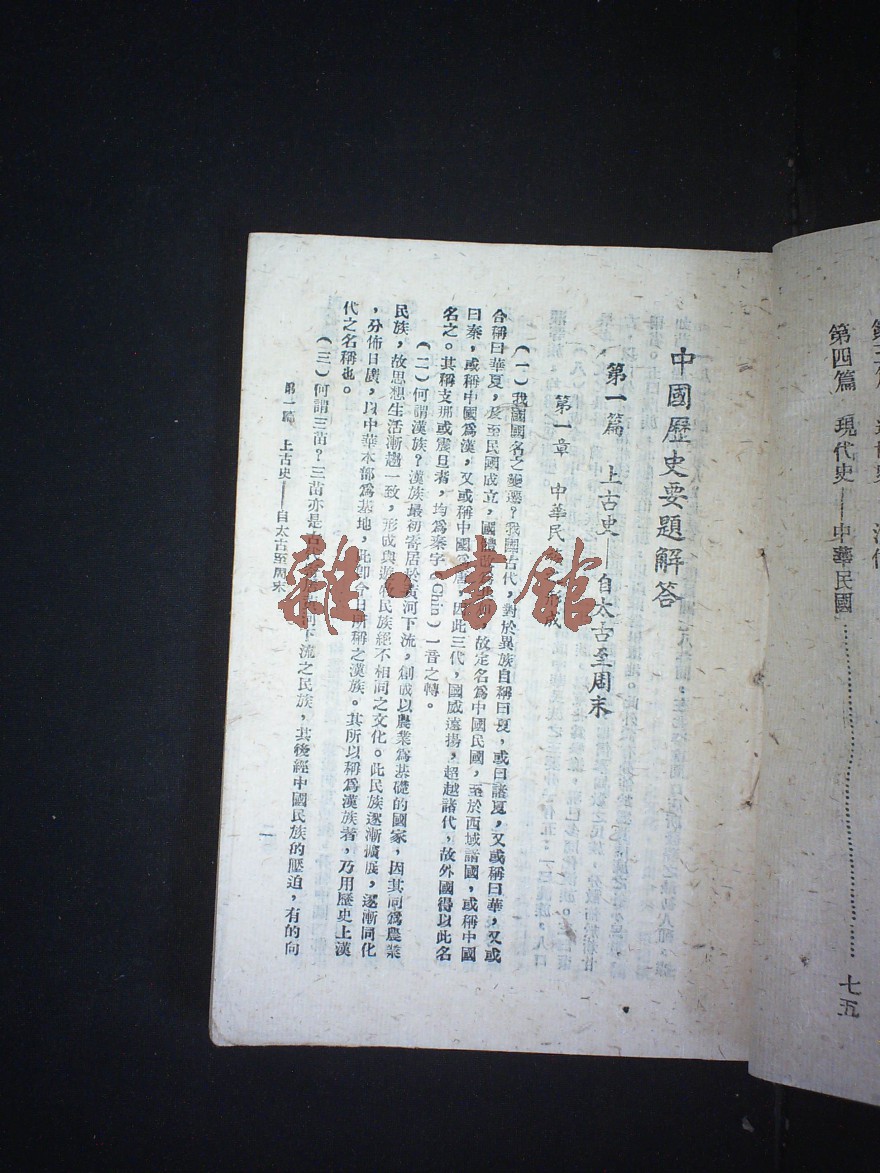 第四篇 現代史——中華民國…………………七五
中國歷史要題解答
第一篇 上古史——自太古至周末
第一章 中華民族 形成
(一)我國國名之變遷?我國古代,對於異族自稱曰夏,或曰諸夏,又或稱曰華,又或
合稱曰華夏,及至民國成立,國體 故定名為中國民國,至於西域諸國,或稱中國
曰秦,或稱中國為漢,又或稱中國為唐,因此三代,國威遠揚,超越諸代,故外國得以此名
名之。其稱支那或震旦者,均為秦字(Chin)一音之轉。
(二)何謂漢族?漢族最初寄居於黃河下流,創成以農業為基礎的國家,因其同為農業
民族,故思想生活漸趨一致,形成與游牧民族絕不相同之文化。此民族逐漸擴展,逐漸同化
,分佈日廣,以中華本部為基地,此卽今日所稱之漢族。其所以稱為漢族者,乃用歷史上漢
代之名稱也。
(三)何謂三苗?三苗亦是古代 河下流之民族,其後經中國民族的壓迫,有的向
第一篇 上古史——自太古至周末
雜·書館